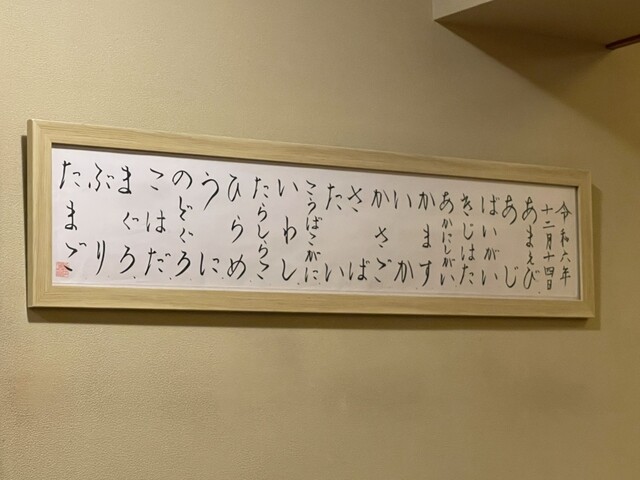 令和六年
十二月十四日
あまえび
あじ
ばいがい
きじはた
あかにしがい
かます
いか
かさご
さば
たい
こうばこがに
いわし
たらしらこ
ひらめ
うに
のどぐろ
こはだ
まぐろ
ぶり
たまご